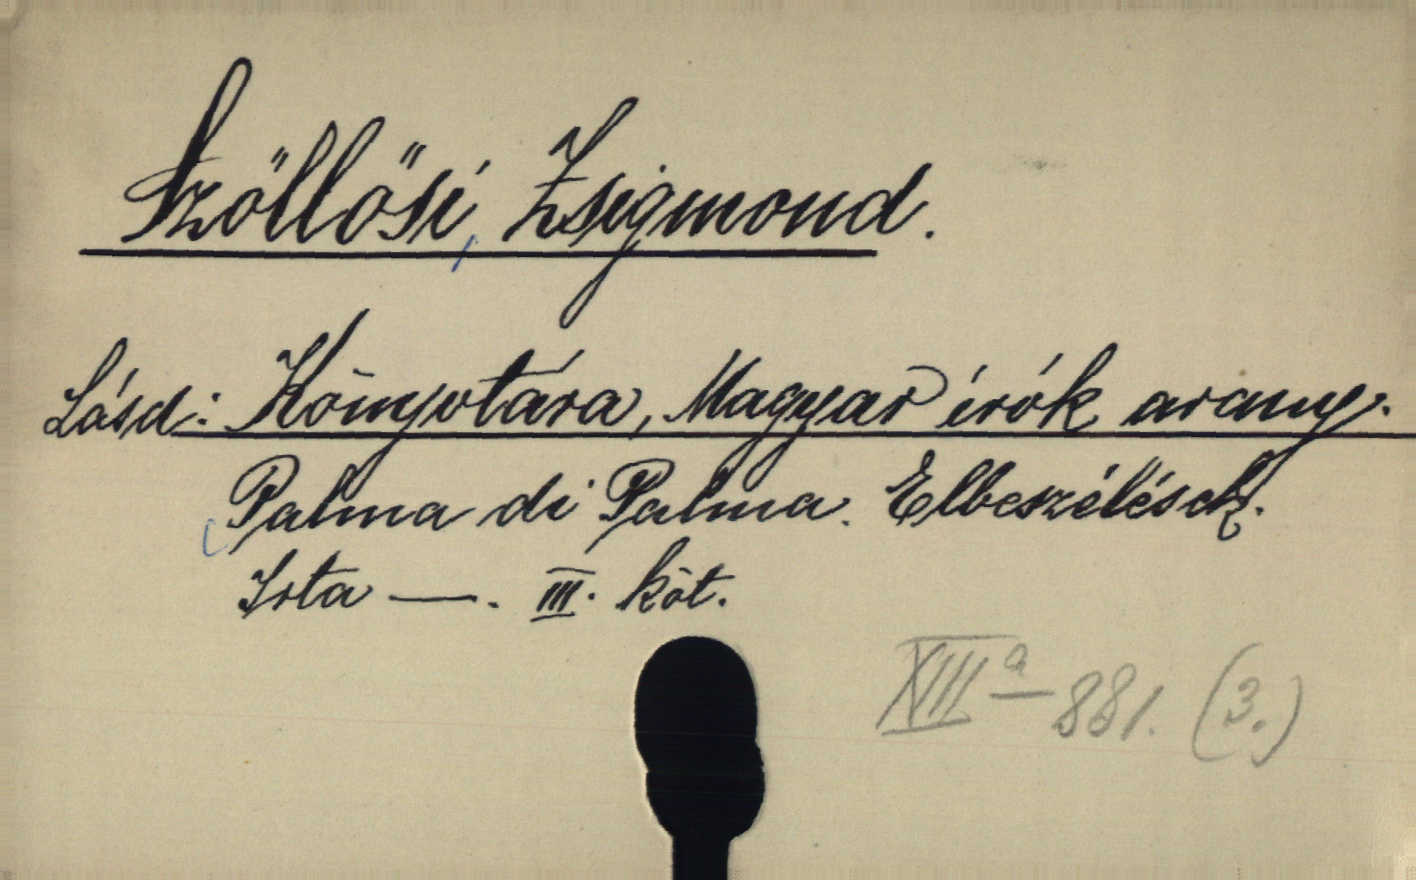 Szőllősi, Zsigmond.
Lásd: Könyvtára, Magyar írók arany.
Palma di Palma. Elbeszélések.
Irta —. III. köt.
XIIIa — 881. (3.)